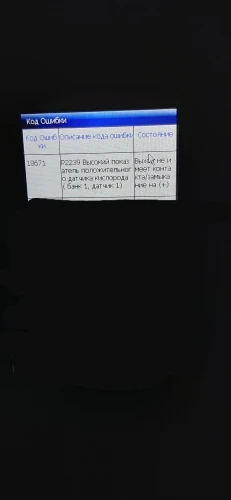 Код Ошибки
Код Ошиб
ки
Описание кода ошибки
Состояние
18671
P2239 Высокий показ
атель положительног
о датчика кислорода
( банк 1, датчик 1)
Выход не и
меет конта
кта/замыка
ние на (+)